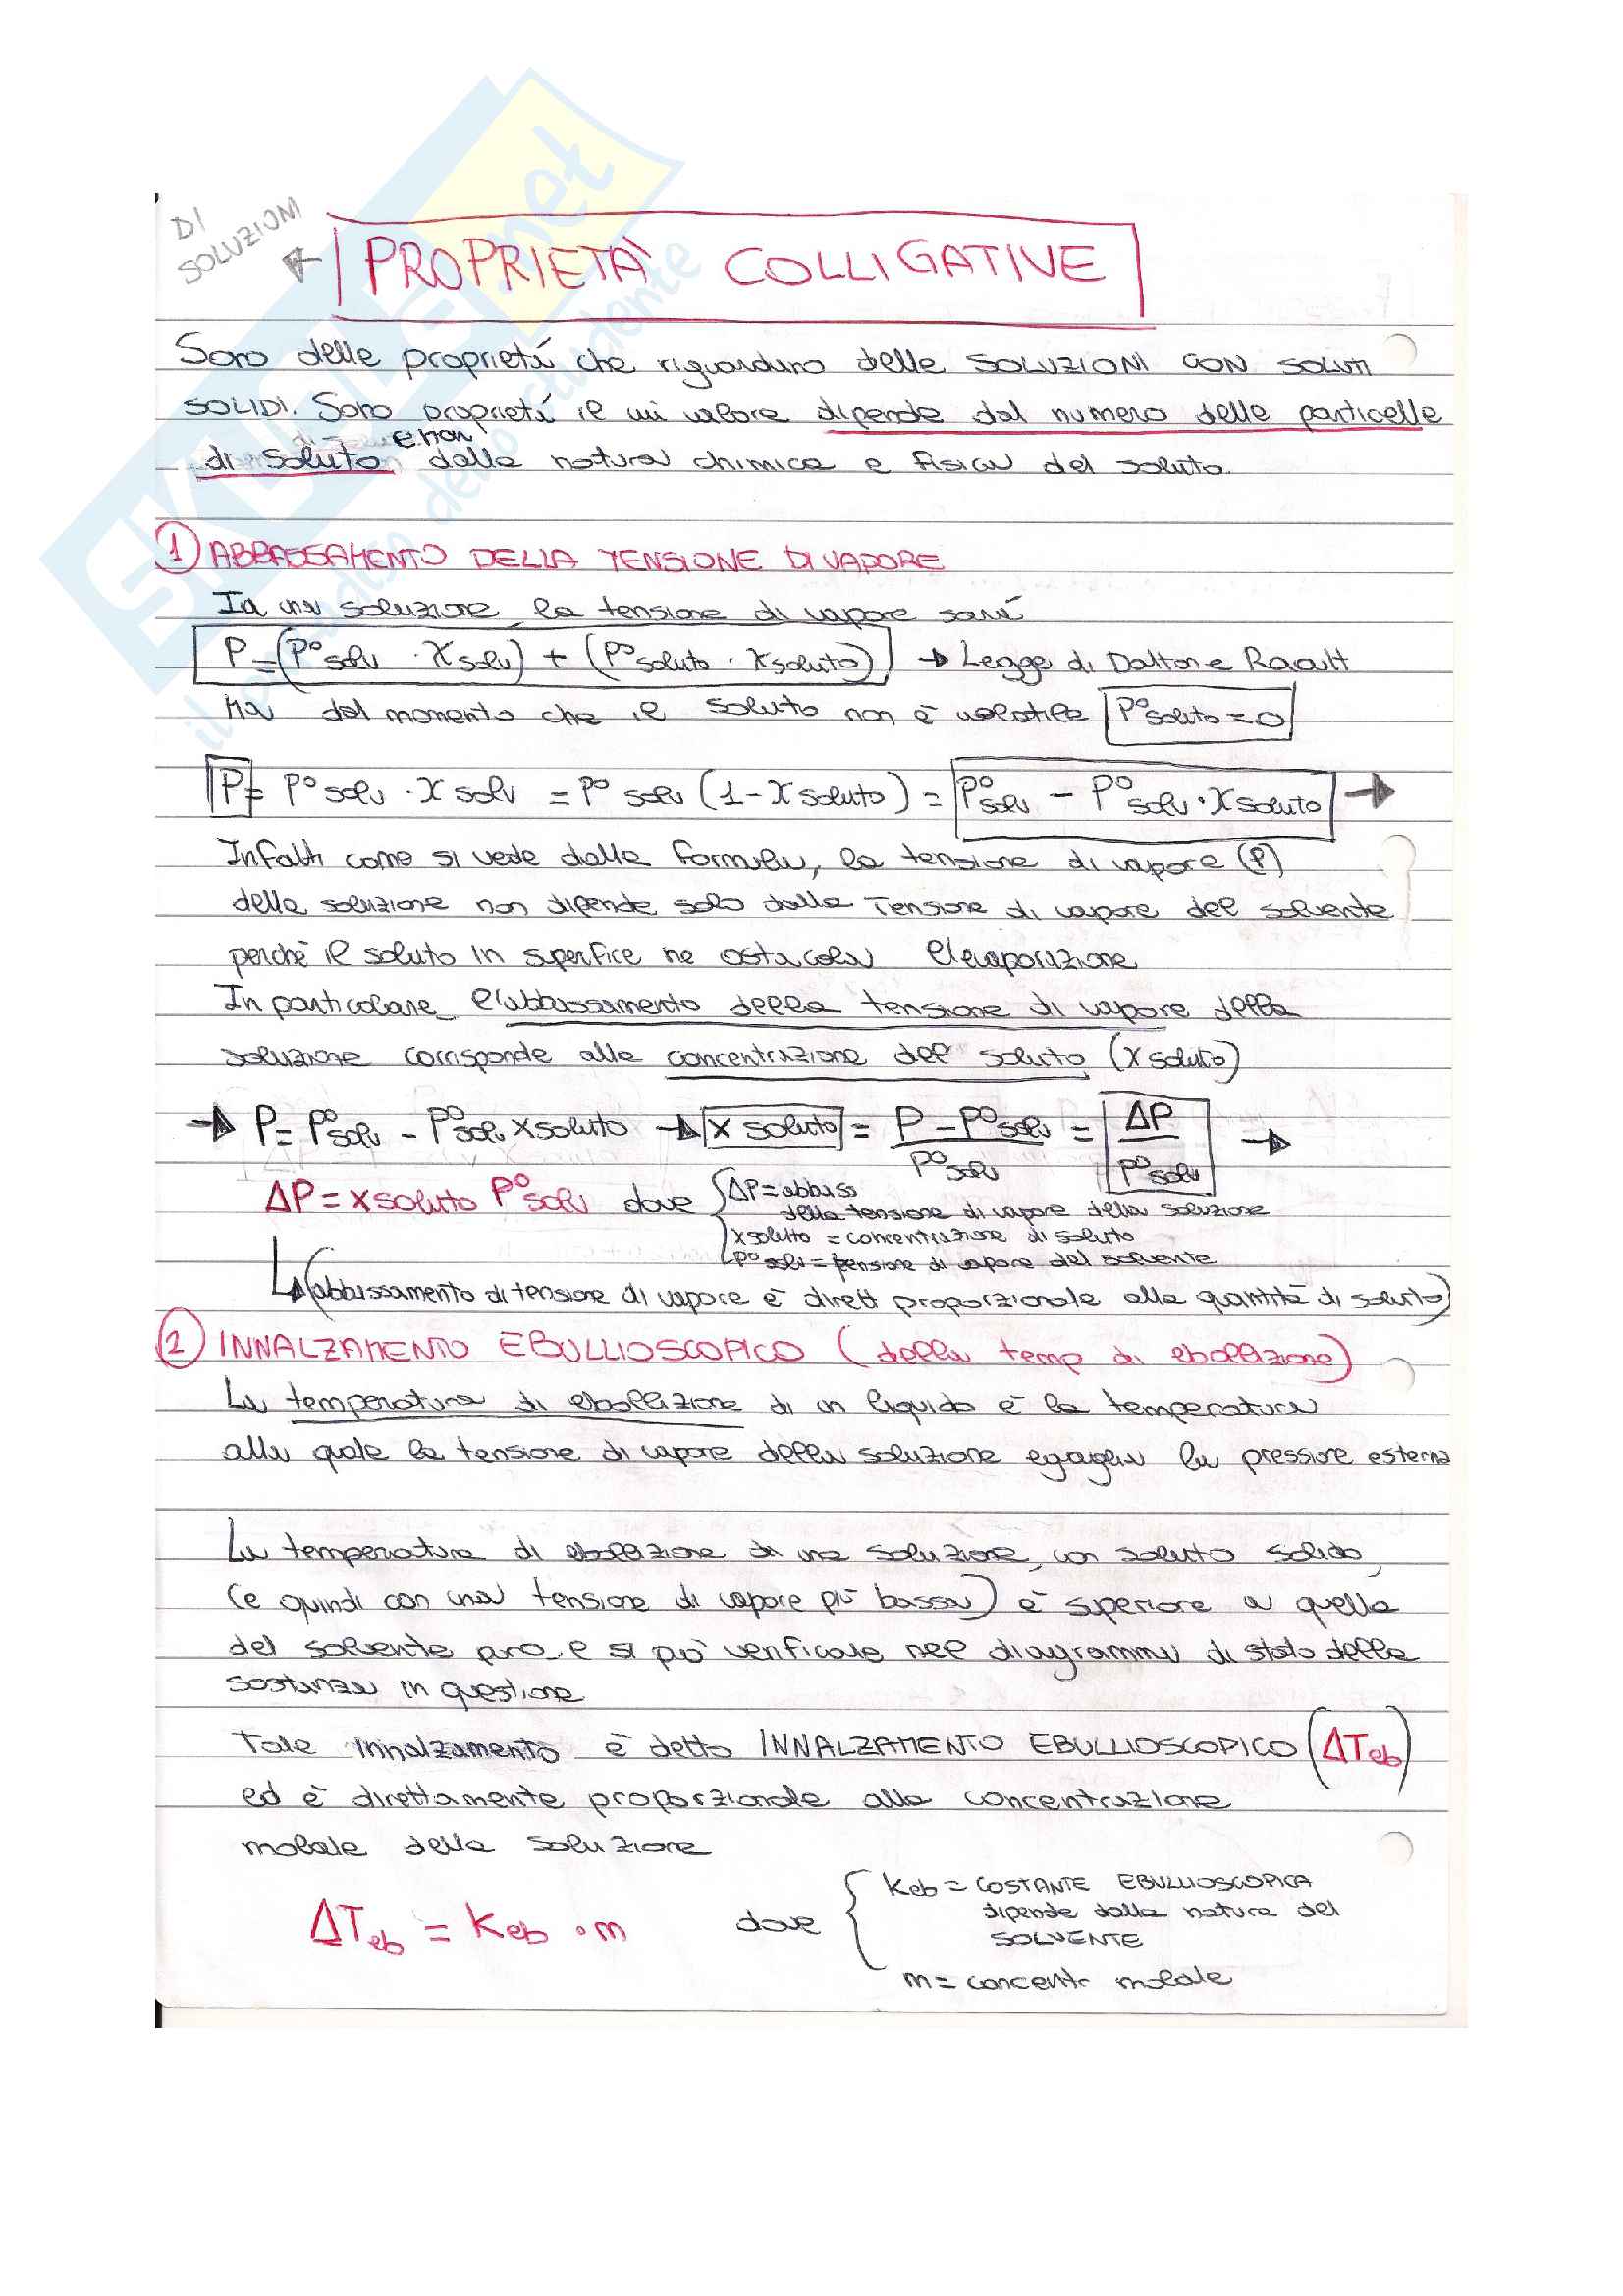 DI
SOLUZIONI
PROPRIETÀ COLLIGATIVE
Sono delle proprietá che riguardano delle SOLUZIONI CON SOLUTI
SOLIDI. Sono proprietá il cui valore dipende dal numero delle particelle
e non
di soluto dalla natura chimica e fisica del soluto.
1 ABBASSAMENTO DELLA TENSIONE DI VAPORE
In una soluzione la tensione di vapore sará
P = (P°solv · Xsolv) + (P°soluto · Xsoluto) → Legge di Dalton e Raoult
Ma dal momento che il soluto non è volatile P°soluto = 0
P = P°solv · X solv = P° solv (1 - X soluto) = P°solv - P°solv · X soluto →
Infatti come si vede dalla formula, la tensione di vapore (P)
della soluzione non dipende solo dalla Tensione di vapore del solvente
perchè il soluto in superfice ne ostacola l'evaporazione
In particolare l'abbassamento della tensione di vapore della
soluzione corrisponde alla concentrazione del soluto (X soluto)
→ P = P°solv - P°solv X soluto → X soluto = P - P°solv / P°solv = ΔP / P°solv →
ΔP = X soluto P°solv dove ΔP = abbass
della tensione di vapore della soluzione
X soluto = concentrazione di soluto
P° solv = tensione di vapore del solvente
(abbassamento di tensione di vapore è dirett proporzionale alla quantità di soluto)
2 INNALZAMENTO EBULLIOSCOPICO (della temp di ebollizione)
La temperatura di ebollizione di un liquido è la temperatura
alla quale la tensione di vapore della soluzione egaglia la pressione esterna
La temperatura di ebollizione di una soluzione, con soluto solido,
(e quindi con una tensione di vapore più bassa) è superiore a quella
del solvente puro e si puo' verificare nel diagramma di stato della
sostanza in questione
Tale innalzamento è detto INNALZAMENTO EBULLIOSCOPICO (ΔTeb)
ed è direttamente proporzionale alla concentrazione
molale della soluzione
ΔTeb = Keb · m dove Keb = COSTANTE EBULLIOSCOPICA
dipende dalla natura del
SOLVENTE
m = concentr molale